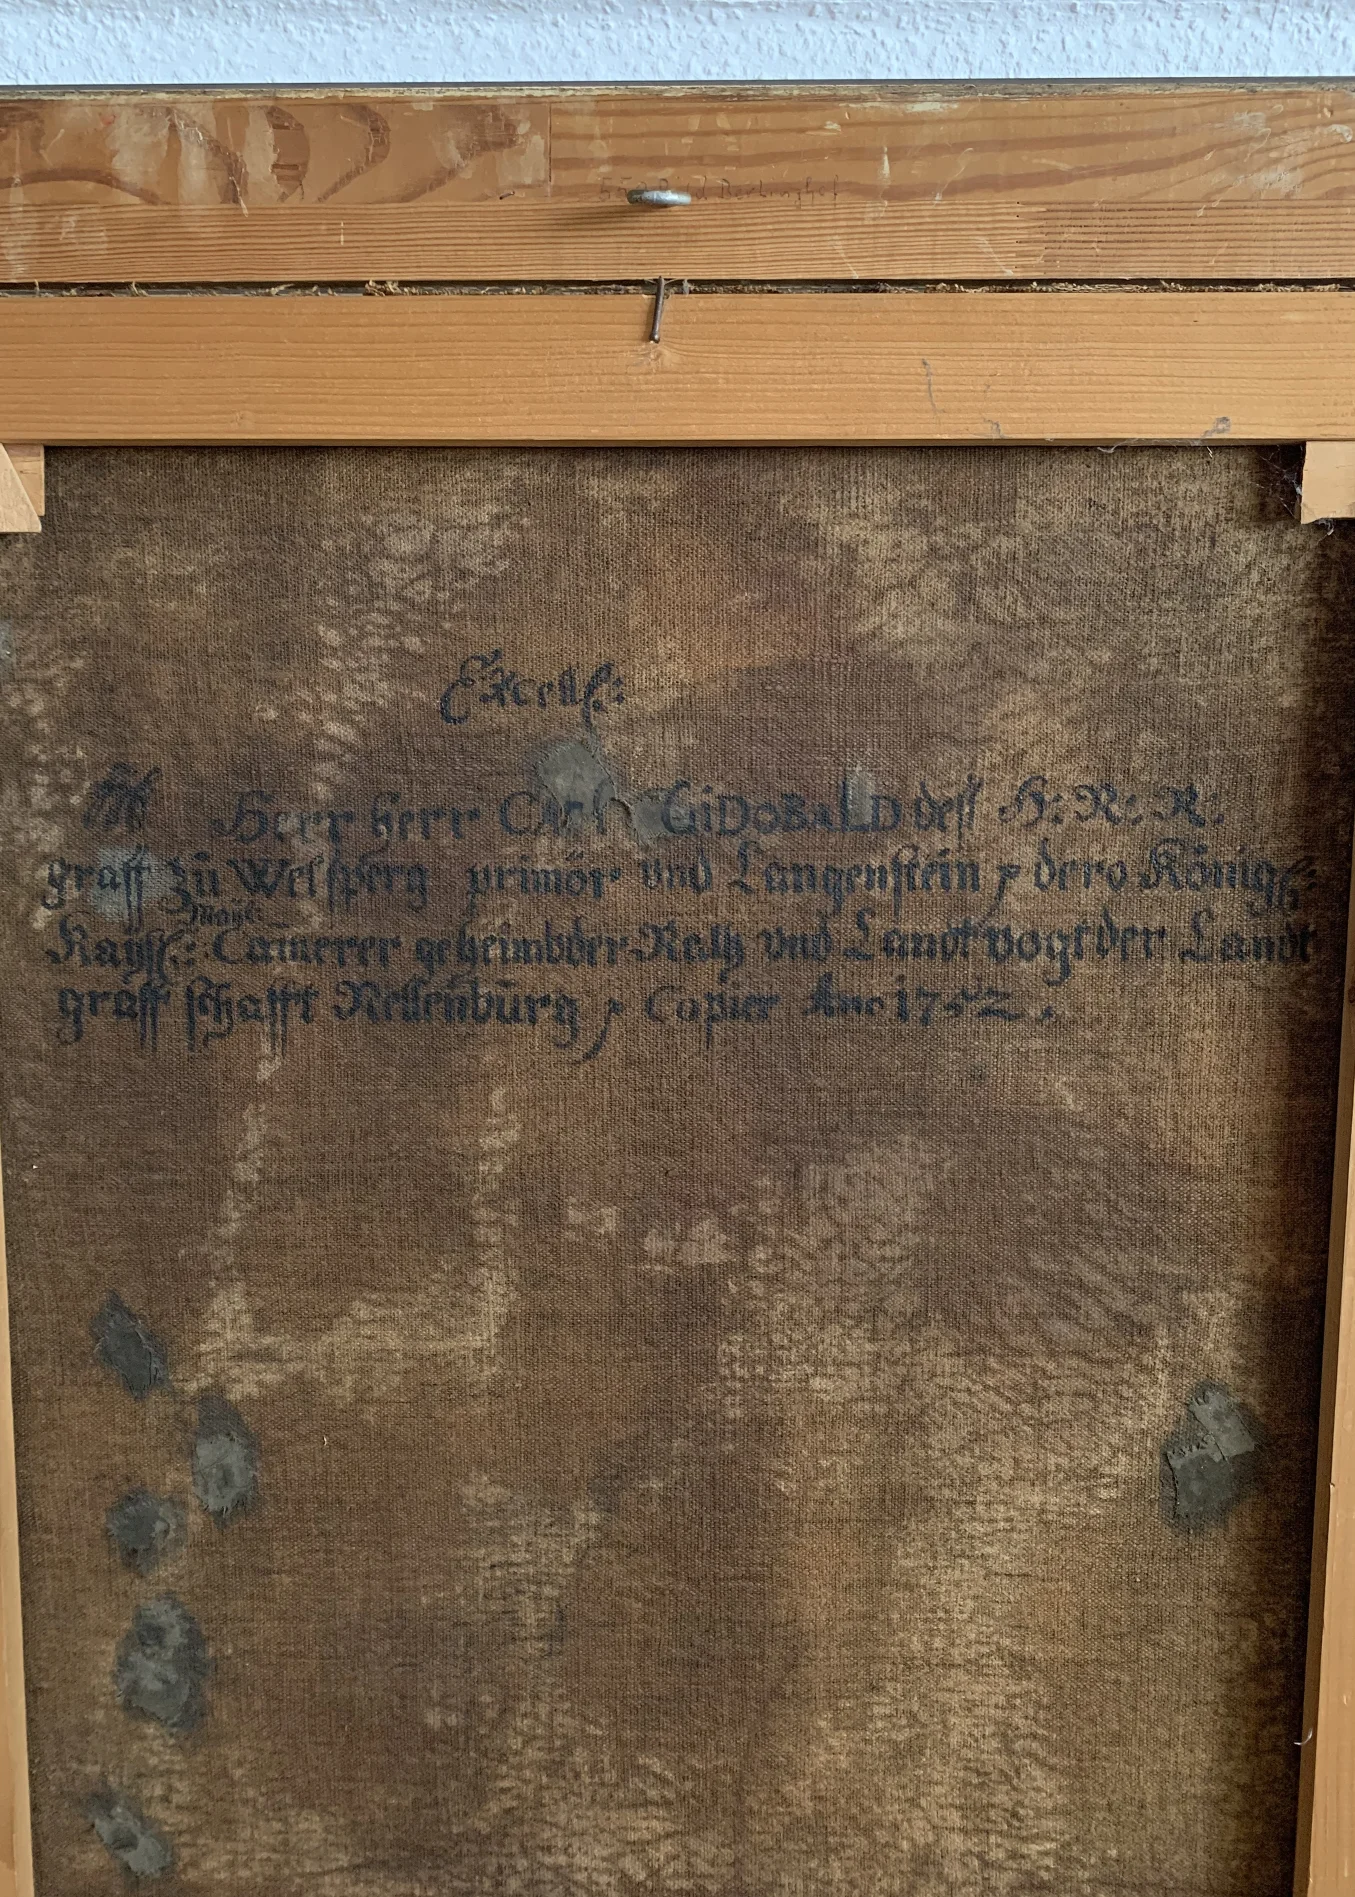 Excell:
Herr herr CARL GiDOBALD deß H: R: R:
graff zu Welsperg primör und Langenstein, dero Königl:
Mayt:
Kayßl: Camerer geheimbder Rath und Landtvogt der Landt
graff schafft Nellenburg, Copier Ano 1752.